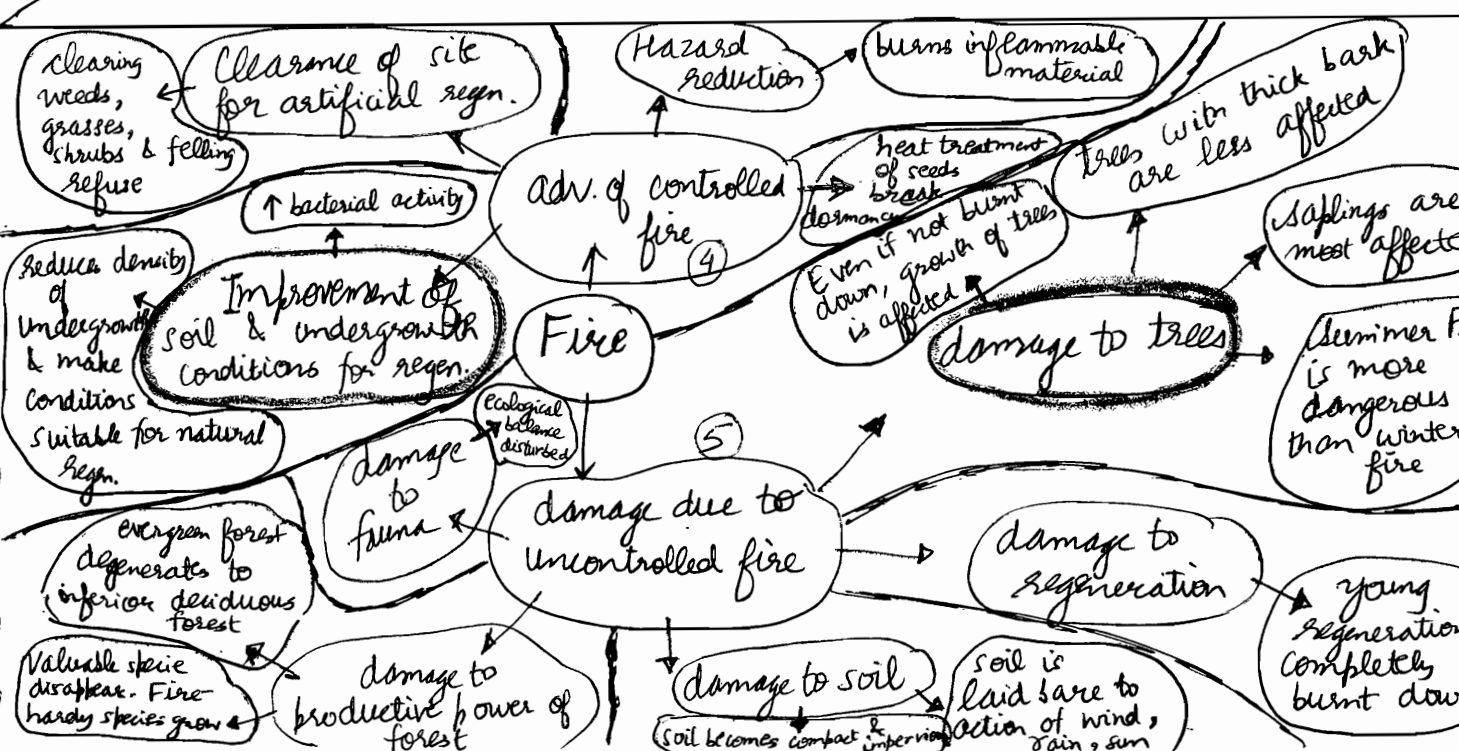 clearing
weeds,
grasses,
shrubs & felling
refuse
Clearance of site
for artificial regen.
Hazard
reduction
burns inflammable
material
trees with thick bark
are less affected
↑ bacterial activity
adv. of controlled
fire
4
heat treatment
of seeds
break
dormancy
Even if not burnt
down, growth of trees
is affected
saplings are
most affecte
reduces density
of
undergrowth
& make
conditions
suitable for natural
regn.
Improvement of
soil & undergrowth
conditions for regen.
Fire
damage to trees
Summer F
is more
dangerous
than winter
fire
ecological
balance
disturbed
damage
to
fauna
5
damage due to
uncontrolled fire
damage to
regeneration
young
regeneration
completely
burnt dow
evergreen forest
degenerates to
inferior deciduous
forest
Valuable specie
disappear. Fire-
hardy species grow
damage to
productive power of
forest
damage to soil
soil becomes compact & impervious
soil is
laid bare to
action of wind,
rain, sun